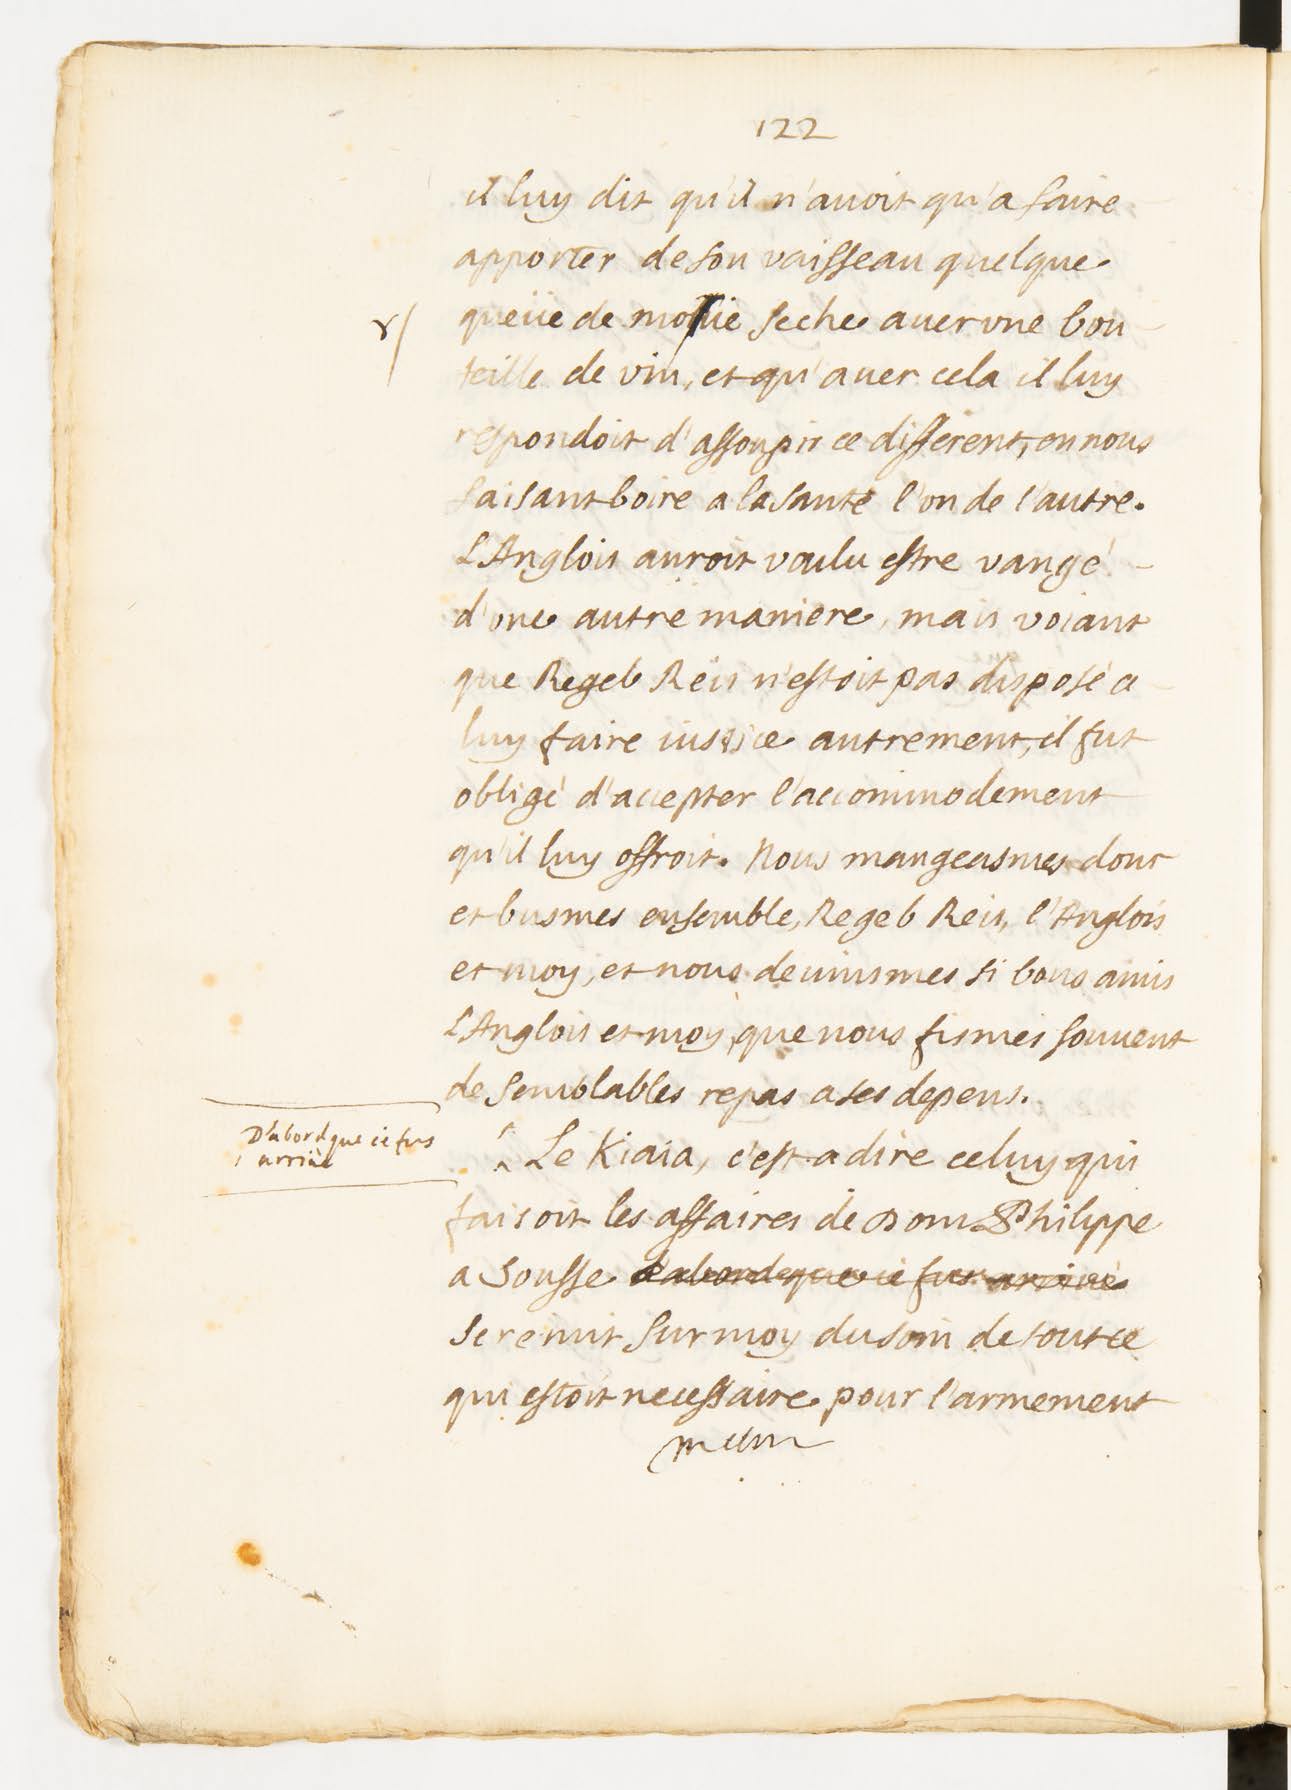 122
il luy dit qu'il n'auoit qu'a faire
apporter de son vaisseau quelque
queüe de moluë seche auec vne bou
r/
teille de vin, et qu'auec cela il luy
respondoit d'assoupir ce different, en nous
faisant boire a la santé l'on de l'autre.
L'Anglois auroit voulu estre vangé
d'one autre maniere, mais voiant
que Regeb Reis n'estoit pas disposé a
luy faire iustice autrement, il fut
obligé d'accepter l'accommodement
qu'il luy offroit. Nous mangeasmes donc
et busmes ensemble, Regeb Reis, l'Anglois
et moy, et nous deuinsmes si bons amis
L'Anglois et moy, que nous fismes souuent
de semblables repas a ses depens.
D'abord que ie fus
arriué
Le Kiaia, c'est a dire celuy qui
faisoit les affaires de Dom Philippe
a Sousse d'abord que ie fus arriué
se remit sur moy du soin de tout ce
qui estoit necessaire pour l'armement